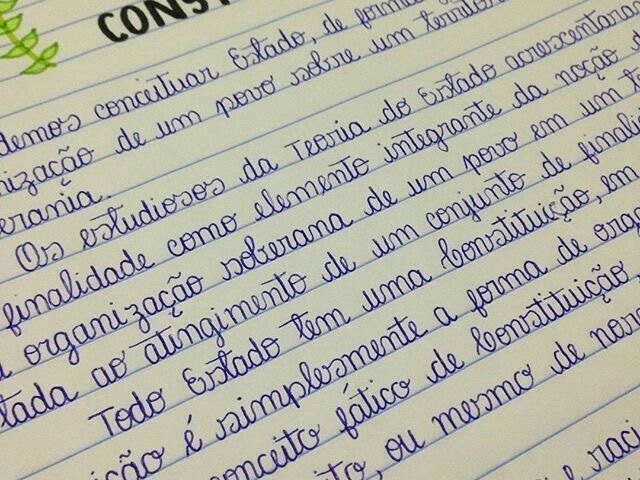 CONST
demos conceituar Estado, de forma
nização de um povo sobre um territó
erania.
Os estudiosos da Teoria do Estado acrescentaram
finalidade como elemento integrante da noção d
organização soberana de um povo em um t
tada ao atingimento de um conjunto de finali
Todo Estado tem uma Constituição, em
ição é simplesmente a forma de orga
conceito fático de Constituição
ito, ou mesmo de nor
e raci